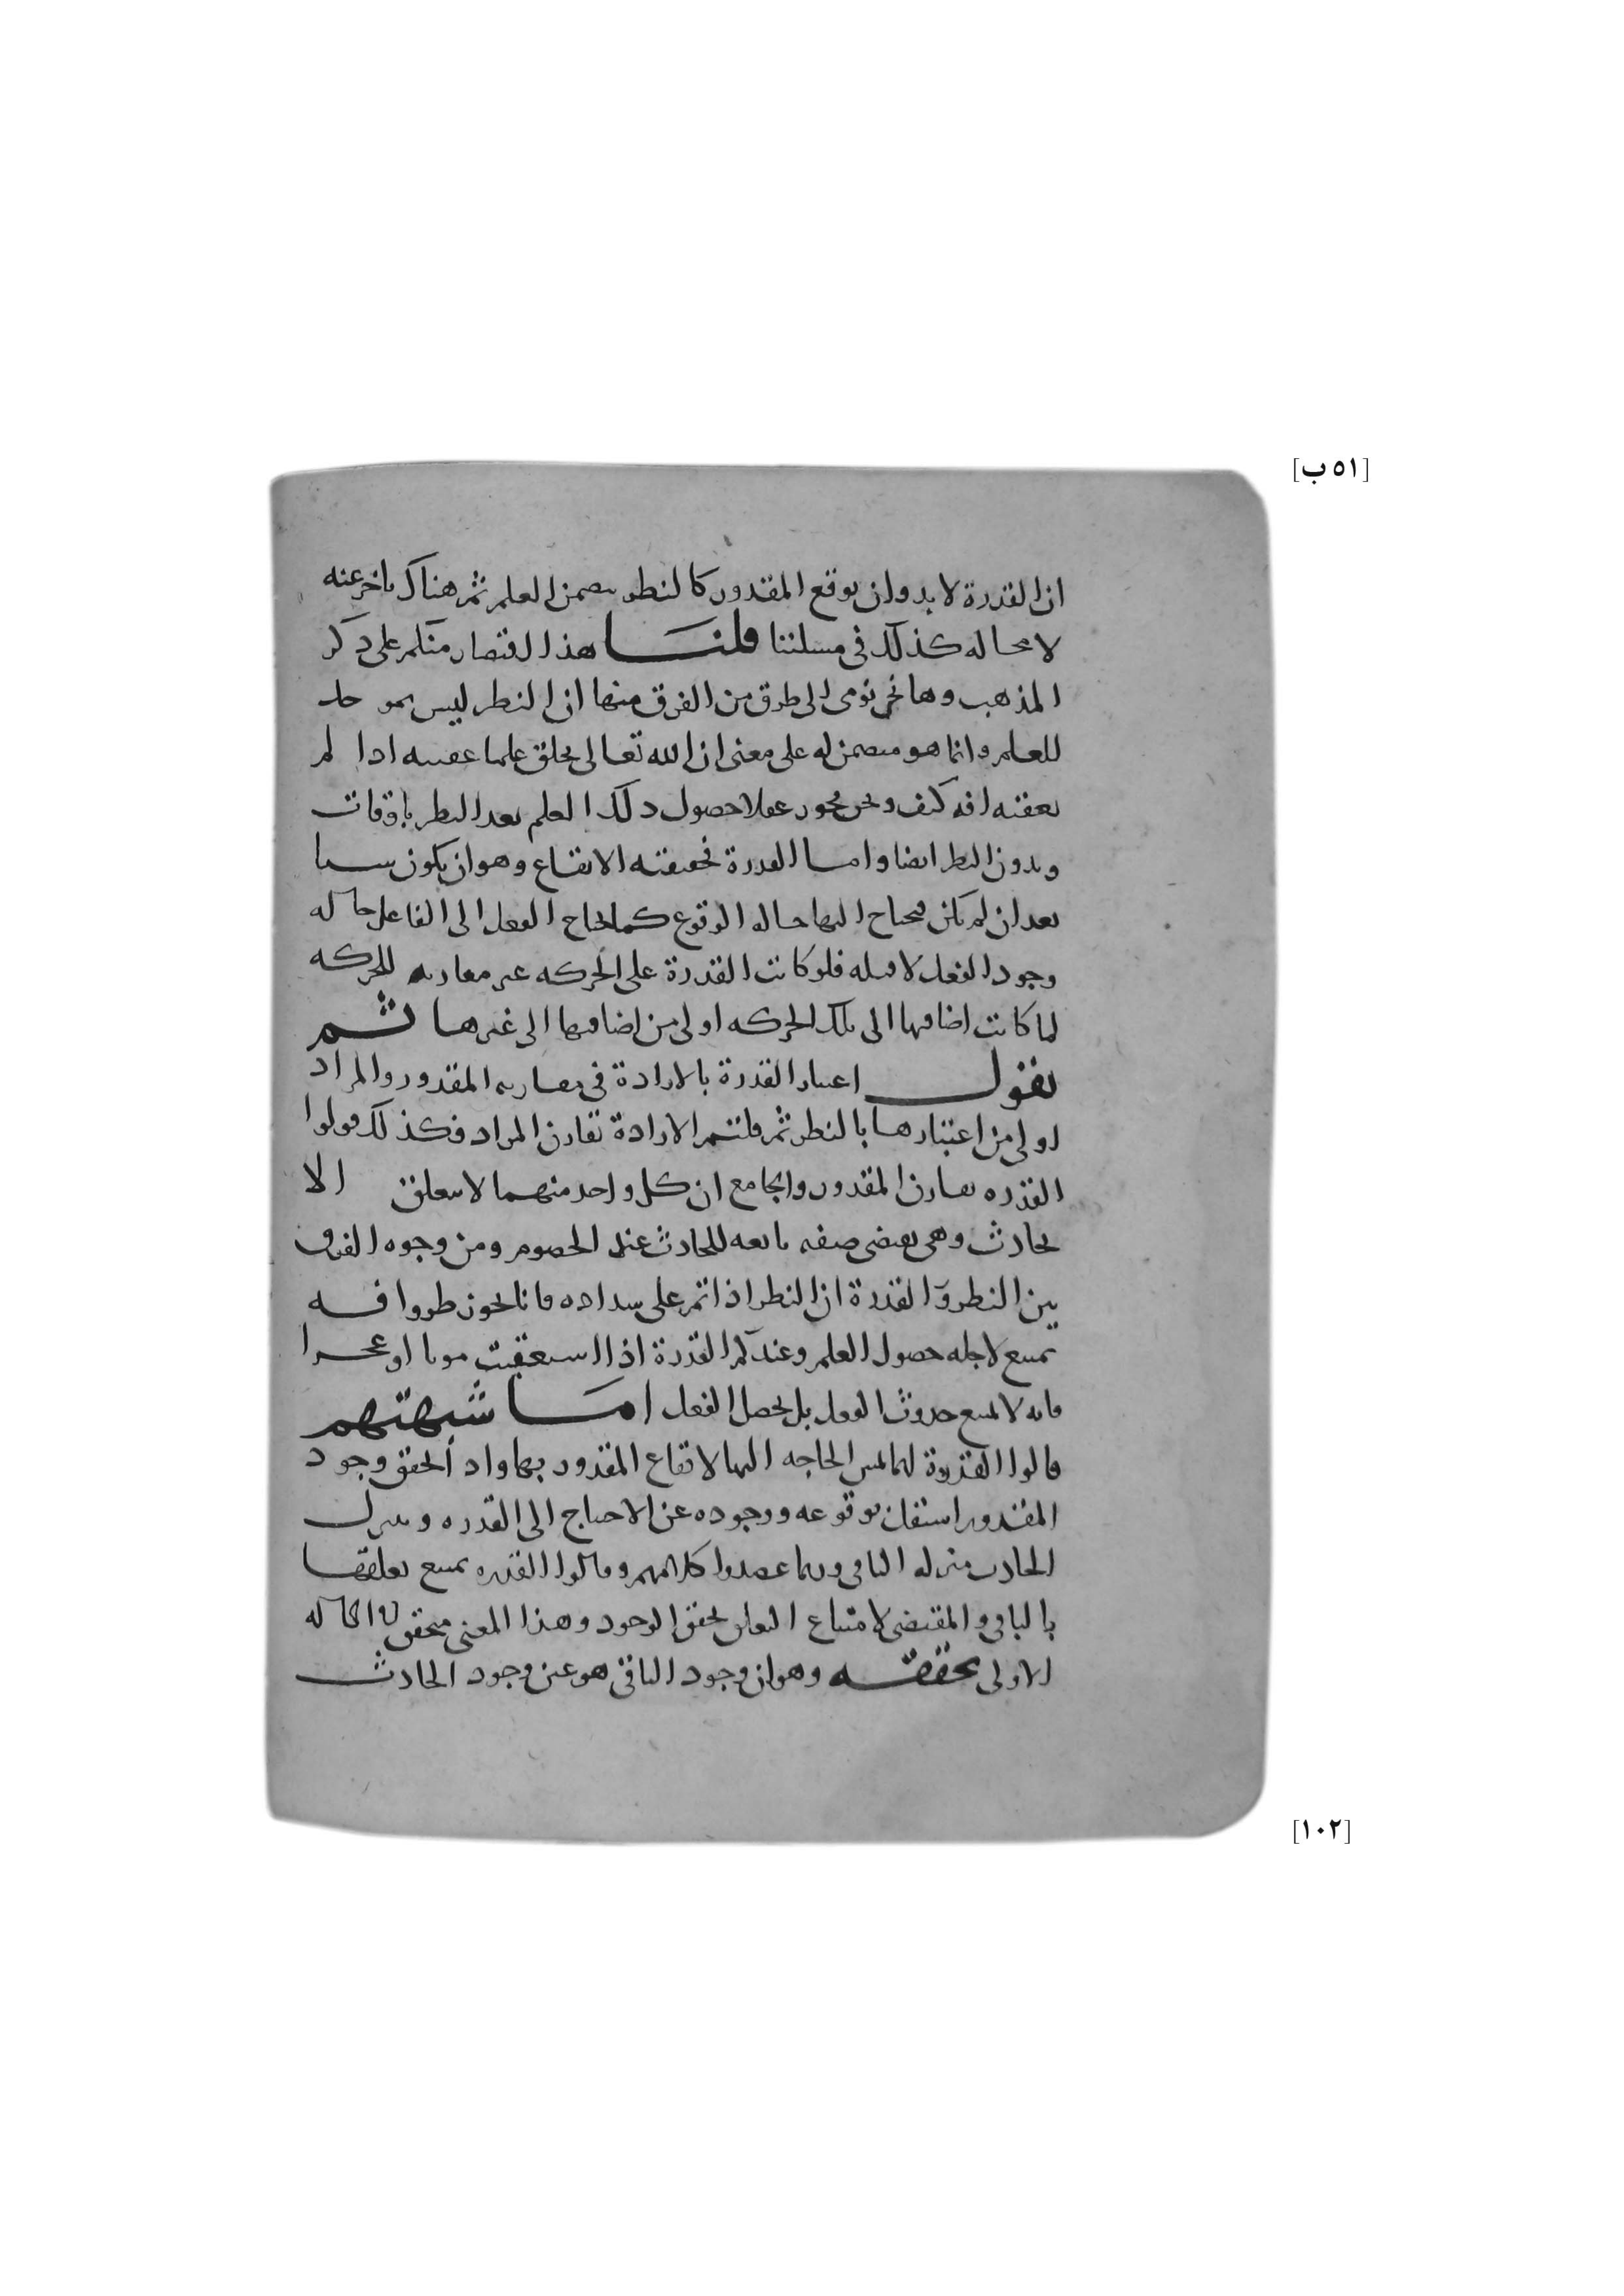 [٥١ ب]
ان القدرة لا بد وان توقع المقدور كالنظر يتضمن العلم ثم هناك تاخر عنه
لا محاله كذلك في مسلتنا قلنا هذا اقتصار منكم على ذكر
المذهب وها نحن نومى الى طرق من الفرق منها ان النظر ليس بموجد
للعلم وانما هو متضمن له على معنى ان الله تعالى يخلق علما عقيبه اذا لم
تعقبه افه كيف ونحن نجوز عقلا حصول ذلك العلم بعد النظر باوقات
وبدون النظر ايضا واما القدرة فحقيقته الايقاع وهو ان يكون شيا
بعد ان لم يكن فيحتاج اليها حاله الوقوع كما يحتاج الفعل الى الفاعل حاله
وجود الفعل لا قبله فلو كانت القدرة على الحركه غير مقارنه للحركه
لما كانت اضافتها الى تلك الحركه اولى من اضافتها الى غيرها ثم
نقول اعتبار القدرة بالارادة في مقارنه المقدور والمراد
اولى من اعتبارها بالنظر ثم قلتم الارادة تقارن المراد فكذلك قولوا
القدره تقارن المقدور والجامع ان كل واحد منهما لا يتعلق الا
بحادث وهي تقتضي صفه تابعه للحادث عند الخصوم ومن وجوه الفرق
بين النظر والقدرة ان النظر اذا تم على سداده فانا نجوز طروا فه
يمتنع لاجله حصول العلم وعندكم القدرة اذا استعقبت موتا او عجزا
فانه لا يمنع حدوث الفعل بل يحصل الفعل اما شبهتهم
قالوا القدرة انما تمس الحاجه اليها لايقاع المقدور بها واذا تحقق وجود
المقدور استقل بوقوعه ووجوده عن الاحتياج الى القدره وينزل
الحادث منزله الباقي وربما عضدوا كلامهم وقالوا القدره يمتنع تعلقها
بالباقي والمقتضى لامتناع التعلق تحقق الوجود وهذا المعنى متحقق في الحاله
الاولى تحققه وهو ان وجود الباقي هو عين وجود الحادث
[١٠٢]